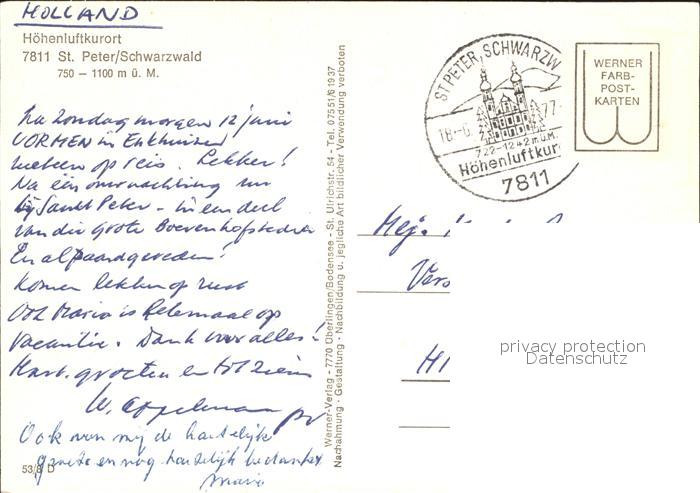 HOLLAND
Höhenluftkurort
7811 St. Peter/Schwarzwald
750 – 1100 m ü. M.
Na Zondag morgen 12 juni
VORMEN in Enkhuizen
meteen op reis. Lekker!
Na één overnachting nu
bij Sankt Peter - in een deel
van die grote Boerenhofsteden
En al paardgereden!
Komen lekker op rust
Ook Maria is helemaal op
vacantie. Dank voor alles!
Hart. groeten en tot ziens
W. Appelman pr
Ook van mij de hartelijke
groeten en nog hartelijk bedankt
Maria
53/8 D
Werner-Verlag - 7770 Überlingen/Bodensee - St. Ulrichstr. 54 - Tel. 07551/61937
Nachahmung · Gestaltung · Nachbildung u. jegliche Art bildlicher Verwendung verboten
ST PETER, SCHWARZW
18.-6. 77
722-1242 m ü.M.
Höhenluftkur
7811
WERNER
FARB-
POST-
KARTEN
privacy protection
Datenschutz